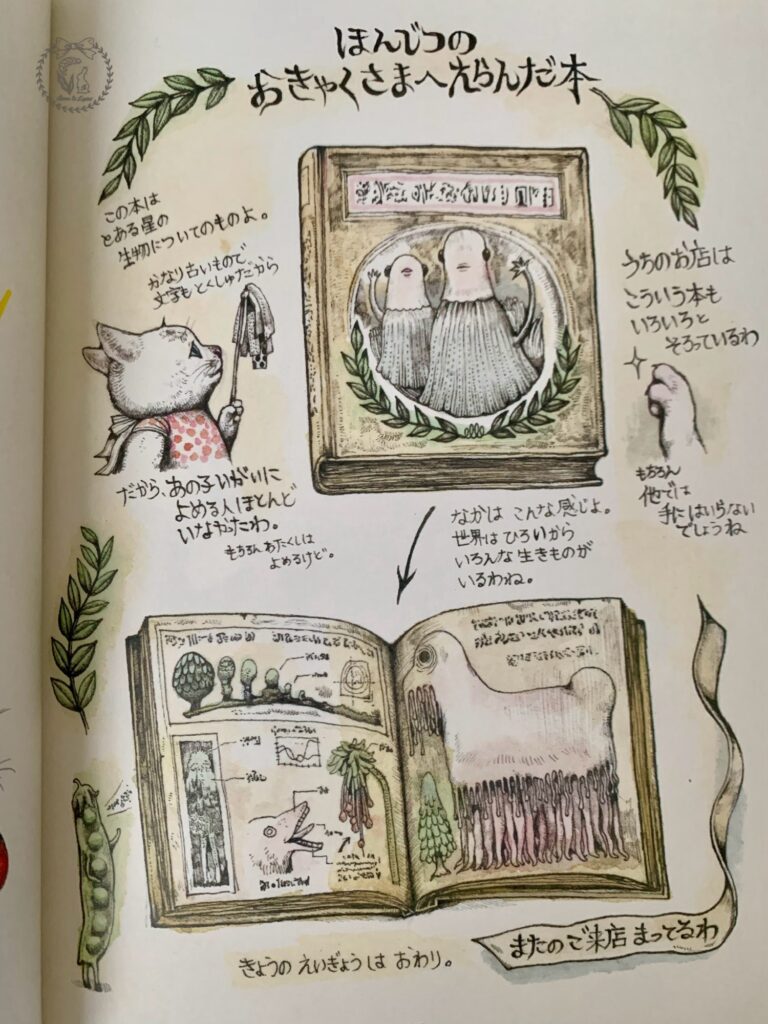 ほんじつの
おきゃくさまへえらんだ本
この本は
とある星の
生物についてのものよ。
かなり古いもので
文字もとくしゅだから
だから、あの子いがいに
よめる人ほとんど
いなかったわ。
もちろんあたくしは
よめるけど。
うちのお店は
こういう本も
いろいろと
そろっているわ
もちろん
他では
手にはいらない
でしょうね
なかは こんな感じよ。
世界は ひろいから
いろんな 生きものが
いるわね。
またのご来店 まってるわ
きょうの えいぎょうは おわり。